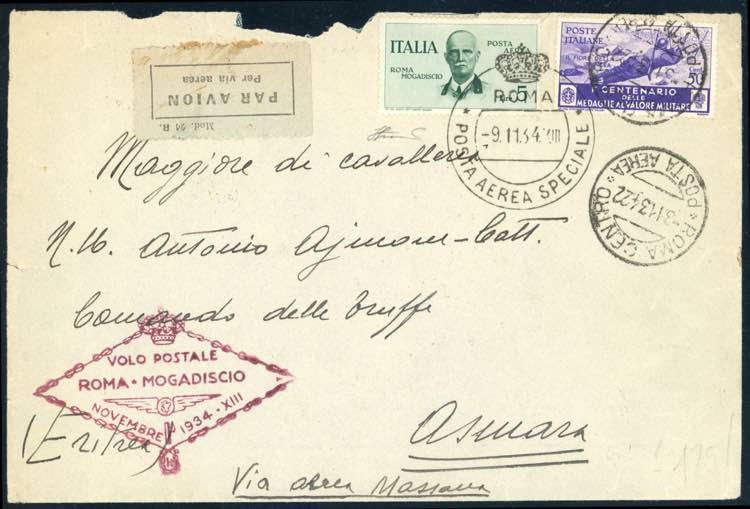 PAR AVION
Per via aerea
Mod. 24 B.
ITALIA
POSTA AEREA
ROMA
MOGADISCIO
5
POSTE ITALIANE
50
CENTENARIO
DELLE
MEDAGLIE AL VALORE MILITARE
ROMA
-9.11.34.XIII
* POSTA AEREA SPECIALE *
ROMA CENTRO
-3.11.34.22
* POSTA AEREA *
Maggiore di cavalleria
N.U. Antonio Ajmone-Catt.
Comando delle Truffe
VOLO POSTALE
ROMA - MOGADISCIO
NOVEMBRE 1934 - XIII
(Eritrea)
Asmara
Via aerea Massaua